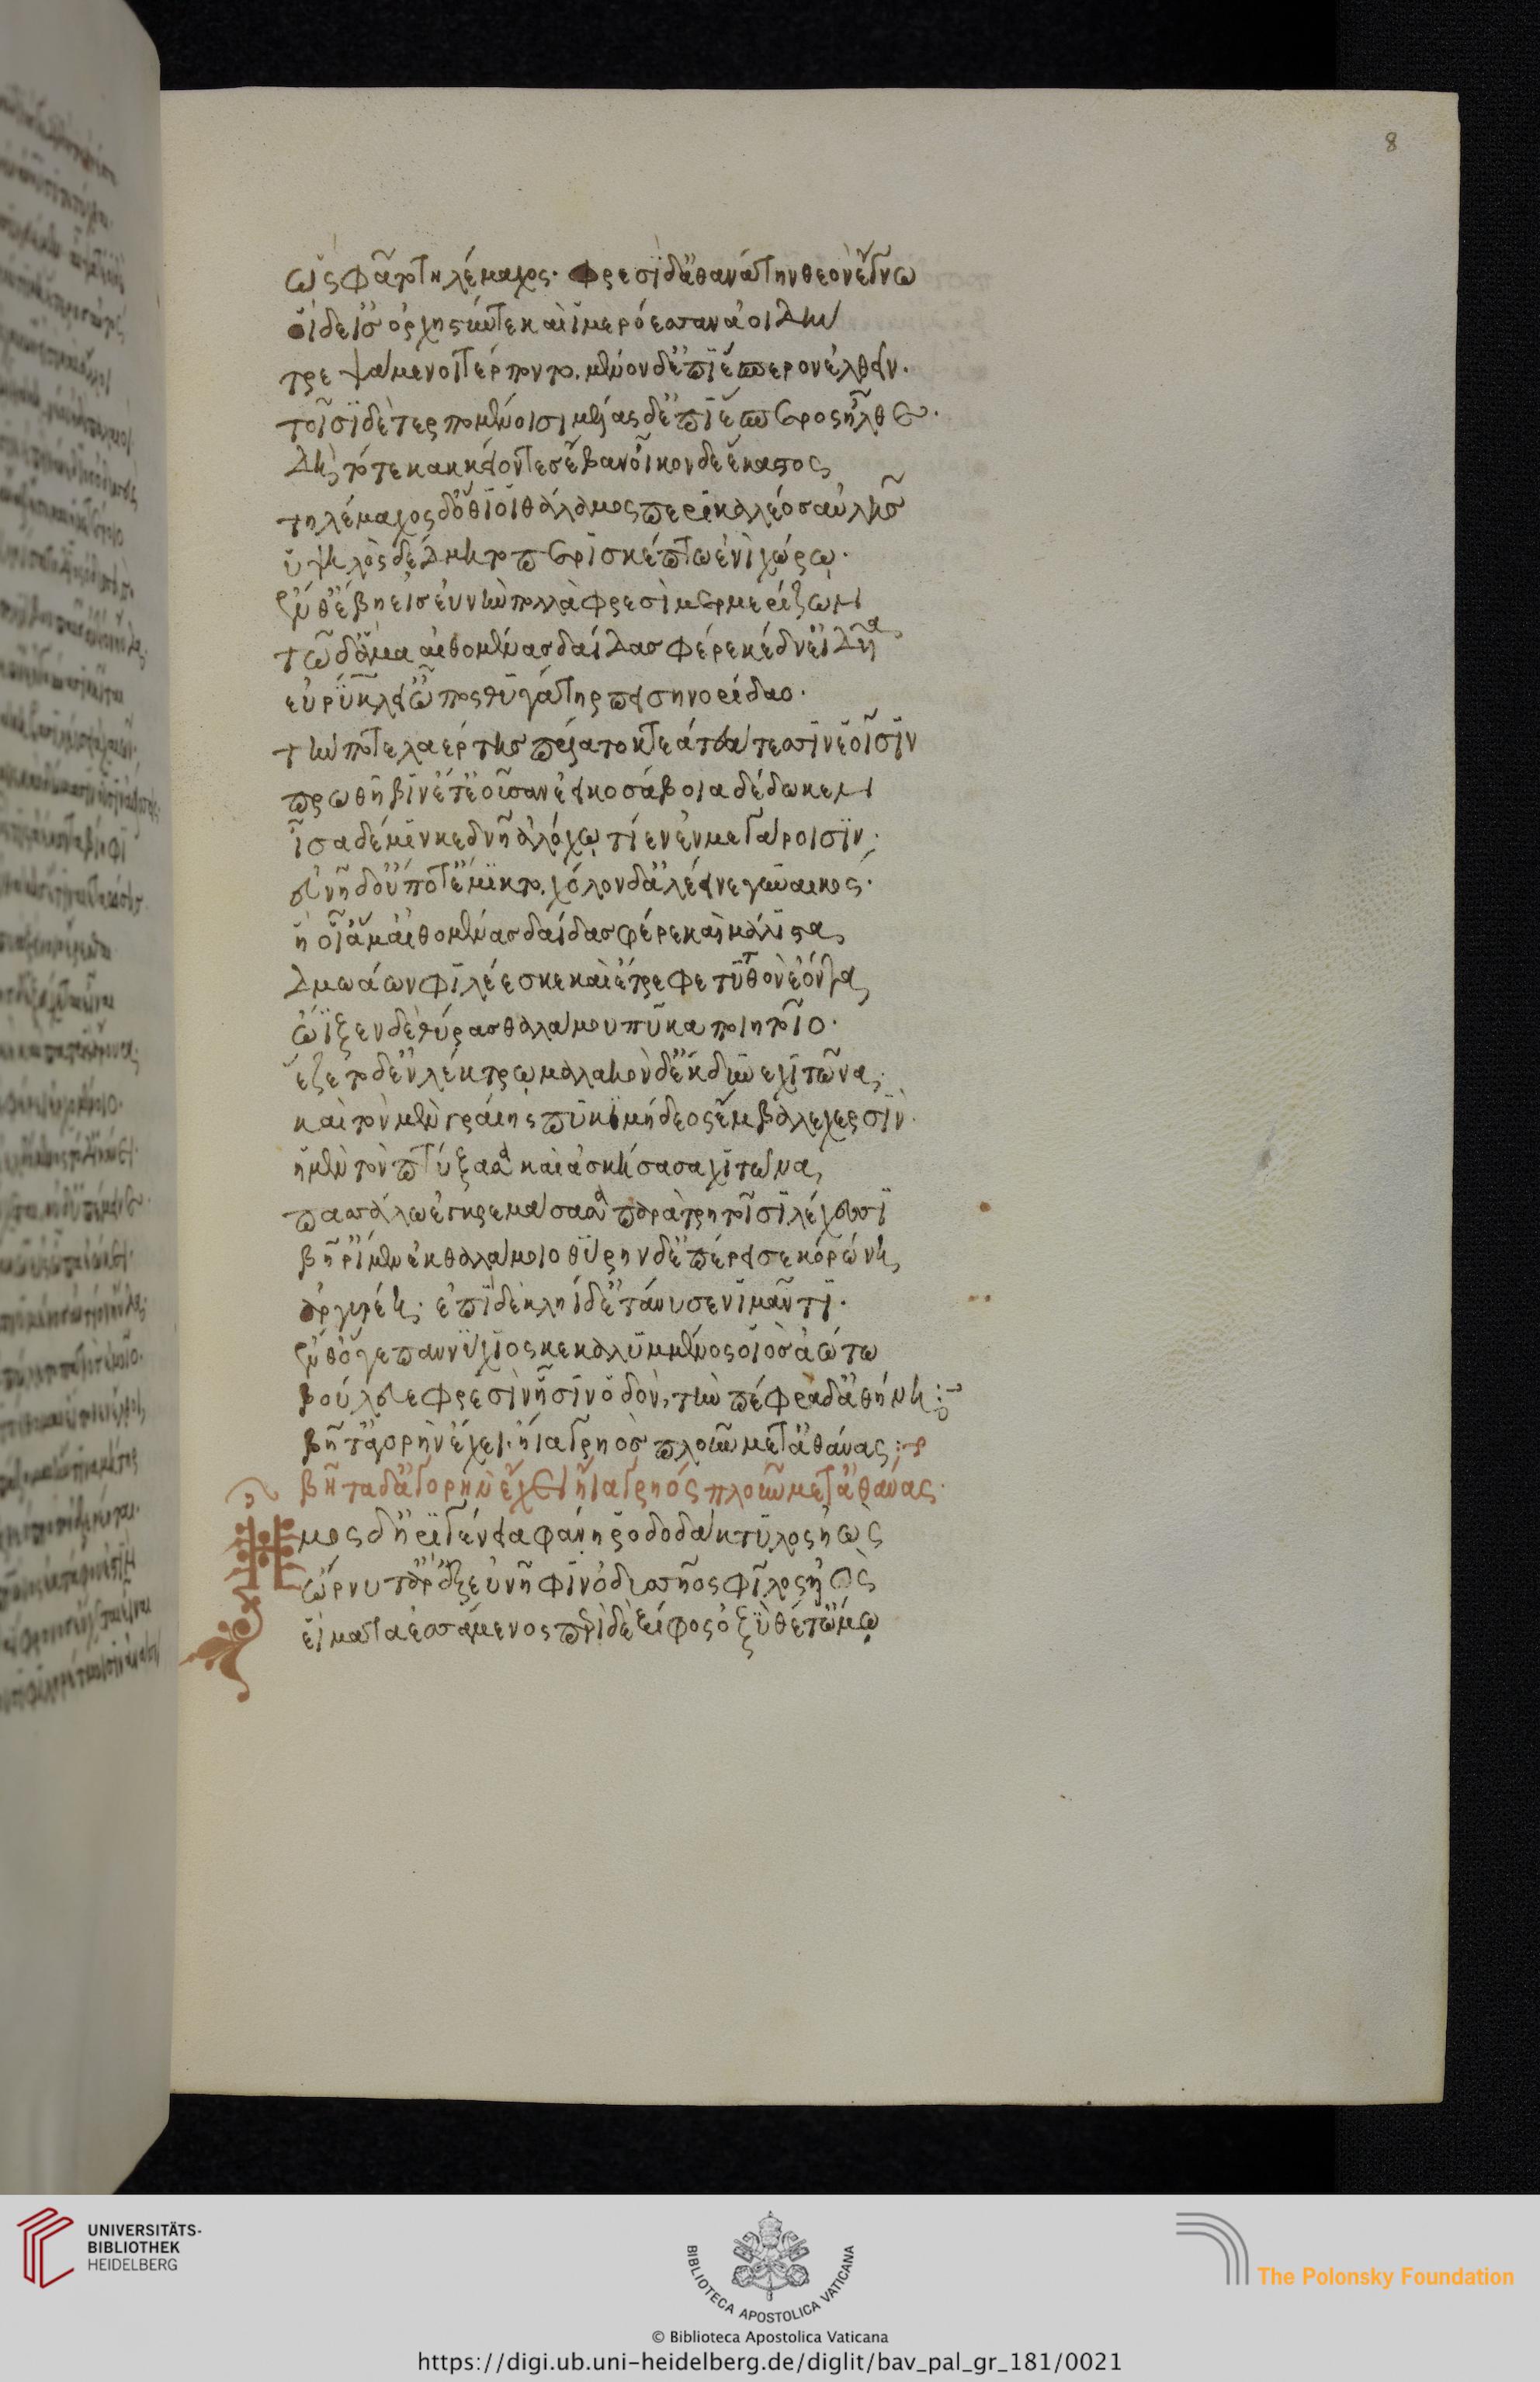 8
ὡς φάτο τηλέμαχος· φρεσὶ δ' ἀθανάτην θεὸν ἔγνω
οἱ δ' εἰς ὀρχηστύν τε καὶ ἱμερόεσσαν ἀοιδὴν
τρεψάμενοι τέρποντο, μένον δ' ἐπὶ ἕσπερον ἐλθεῖν·
τοῖσι δὲ τερπομένοισι μέλας δ' ἐπὶ ἕσπερος ἦλθε·
δὴ τότε κακκείοντες ἔβαν οἶκον δε ἕκαστος
τηλέμαχος δ' ὅθι οἱ θάλαμος περικαλέος αὐλῆς
ὑψηλὸς δέδμητο περισκέπτω ἐνὶ χώρῳ·
ἔνθ' ἔβη εἰς εὐνὴν πολλὰ φρεσὶ μερμηρίζων
τῶ δ' ἄμα αἰθομένας δαΐδας φέρε κέδν' εἰδυῖα
εὐρύκλει' ὦπος θυγάτηρ πεισηνορίδαο·
τήν ποτε λαέρτης πρίατο κτεάτεσσιν ἑοῖσιν
πρωθήβην ἔτ' ἐοῦσαν ἐεικοσάβοια δ' ἔδωκεν
ἶσα δέ μιν κεδνῆ ἀλόχῳ τίεν ἐν μεγάροισιν·
εὐνῆ δ' οὔποτ' ἔμικτο, χόλον δ' ἀλέεινε γυναικός·
ἥ οἱ ἅμ' αἰθομένας δαΐδας φέρε καὶ μάλιστα
δμωάων φιλέεσκε καὶ ἔτρεφε τυτθὸν ἐόντα
ὤϊξεν δὲ θύρας θαλάμου πύκα ποιητοῖο·
ἕζετο δ' ἐν λέκτρῳ μαλακὸν δ' ἔκδυνε χιτῶνα·
καὶ τὸν μὲν γραίης πυκιμήδεος ἔμβαλε χερσίν·
ἡ μὲν τὸν πτύξασα καὶ ἀσκήσασα χιτῶνα
πασσάλω ἐγκρεμάσασα παρὰ τρητοῖσι λέχεσσι
βῆ ῥ' ἴμεν ἐκ θαλάμοιο θύρην δ' ἐπέρεισε κορώνη
ἀργυρέη· ἐπὶ δὲ κληίδ' ἐτάνυσεν ἱμάντι·
ἔνθ' ὅ γε παννύχιος κεκαλυμμένος οἰὸς ἀώτω
βούλευε φρεσὶν ἧσιν ὁδόν, τὴν πέφραδ' ἀθήνη:
βῆτ' ἀγορὴν ἔχει· ἠ ἰαγρηὸς πλοῦν μετ' ἀθάνας:
βῆτα δ' ἀγορὴν ἔχει ἠ ἰαγρηὸς πλοῦν μετ' ἀθάνας·
Ημος δ' ἠριγένεια φάνη ῥοδοδάκτυλος ἠὼς
ὤρνυτ' ἄρ' ἐξ εὐνῆφιν ὀδυσσῆος φίλος ὑιὸς
εἵματα ἑσσάμενος περὶ δὲ ξίφος ὀξὺ θέτ' ὤμῳ
UNIVERSITÄTS-
BIBLIOTHEK
HEIDELBERG
BIBLIOTECA APOSTOLICA VATICANA
The Polonsky Foundation
© Biblioteca Apostolica Vaticana
https://digi.ub.uni-heidelberg.de/diglit/bav_pal_gr_181/0021